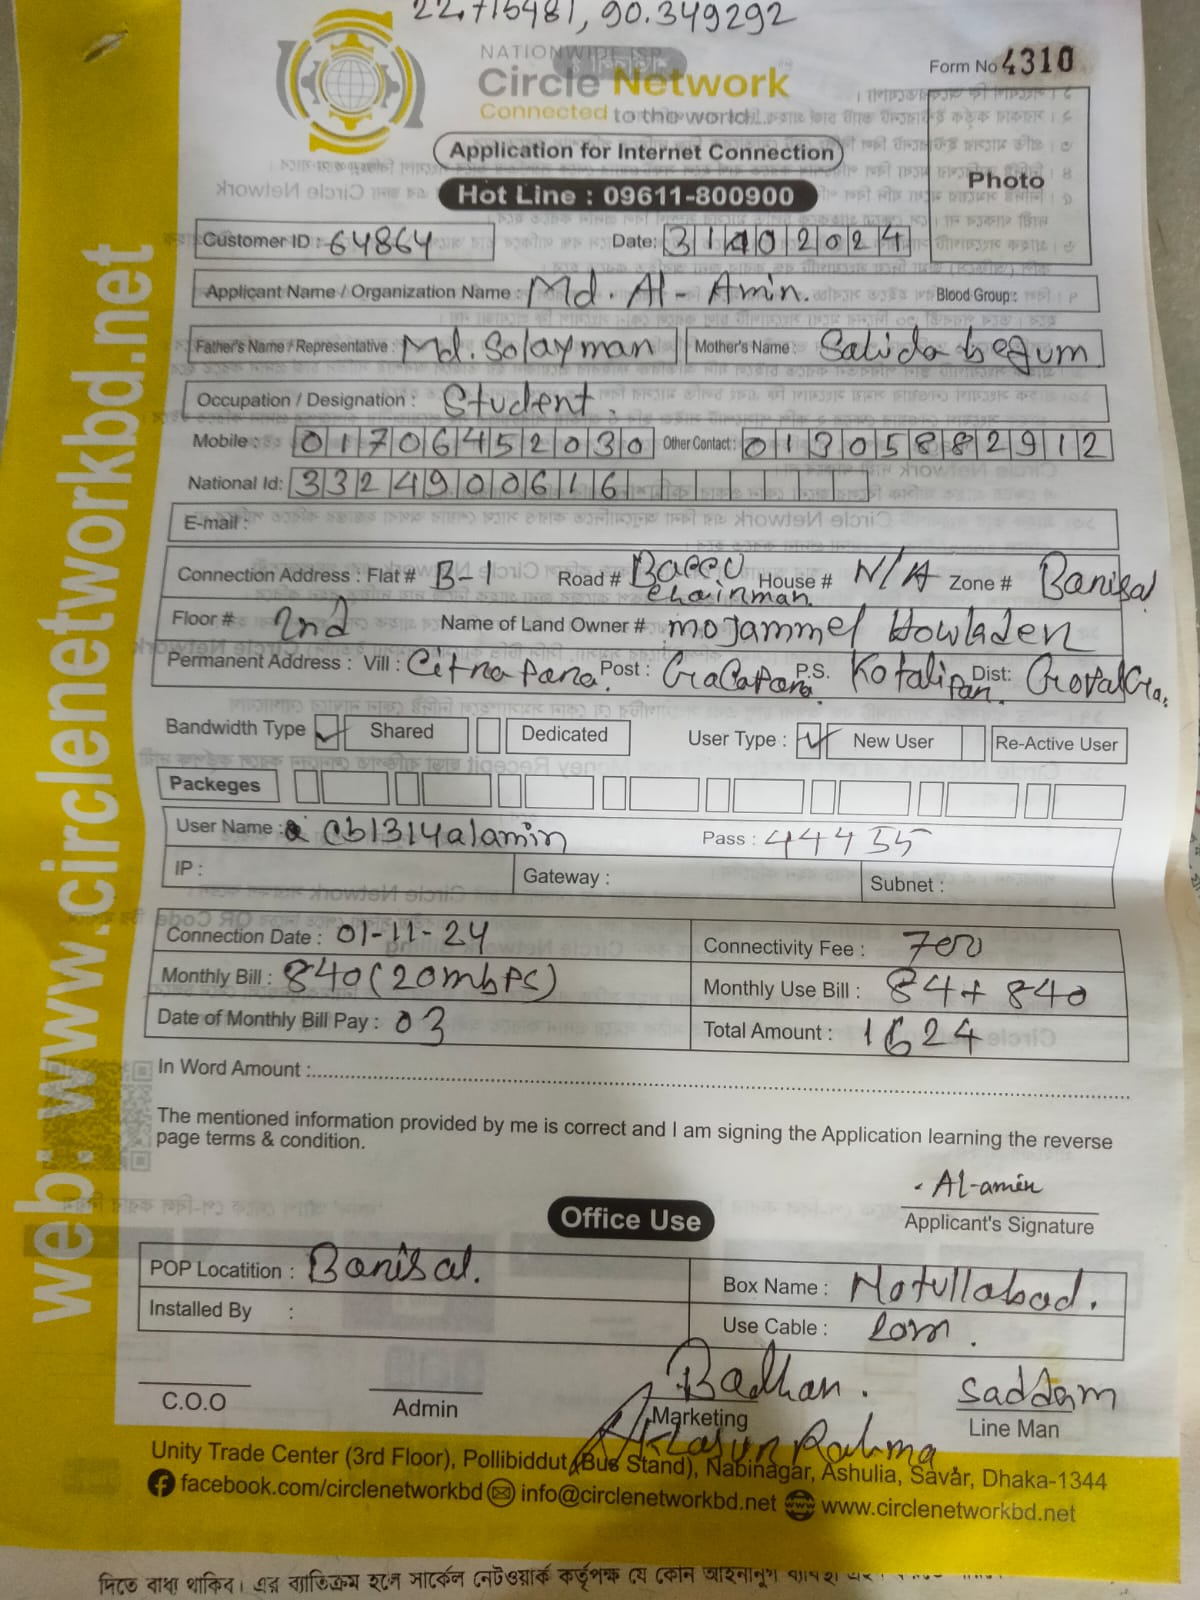 22.715481, 90.349292
NATIONWIDE ISP
Circle Network
Connected to the world...
Form No 4310
Application for Internet Connection
Photo
Hot Line : 09611-800900
Customer ID : 64864 Date: 31 10 2024
Applicant Name / Organization Name : Md. Al-Amin. Blood Group :
Father's Name / Representative : Md. Solayman Mother's Name : Salida begum
Occupation / Designation : Student.
Mobile : 01706452030 Other Contact : 01305882912
National Id: 3324900616
E-mail :
Connection Address : Flat # B-1 Road # House # N/A Zone # Barisal
Floor # 2nd Name of Land Owner # mojammel Howlader
Permanent Address : Vill : Post : P.S. Kotalipara. Dist:
Bandwidth Type Shared Dedicated User Type : New User Re-Active User
Packeges
User Name : cb1314alamin Pass : 44455
IP : Gateway : Subnet :
Connection Date : 01-11-24 Connectivity Fee : 700
Monthly Bill : 840 (20mbps) Monthly Use Bill : 84 + 840
Date of Monthly Bill Pay : 03 Total Amount : 1624
In Word Amount :
The mentioned information provided by me is correct and I am signing the Application learning the reverse
page terms & condition.
Al-amin
Applicant's Signature
Office Use
POP Locatition : Barisal. Box Name : Natullabad.
Installed By : Use Cable :
Badhan. saddam
C.O.O Admin Marketing Line Man
Unity Trade Center (3rd Floor), Pollibiddut (Bus Stand), Nabinagar, Ashulia, Savar, Dhaka-1344
facebook.com/circlenetworkbd info@circlenetworkbd.net www.circlenetworkbd.net
web: www.circlenetworkbd.net
দিতে বাধ্য থাকিব। এর ব্যতিক্রম হলে সার্কেল নেটওয়ার্ক কর্তৃপক্ষ যে কোন আইনানুগ